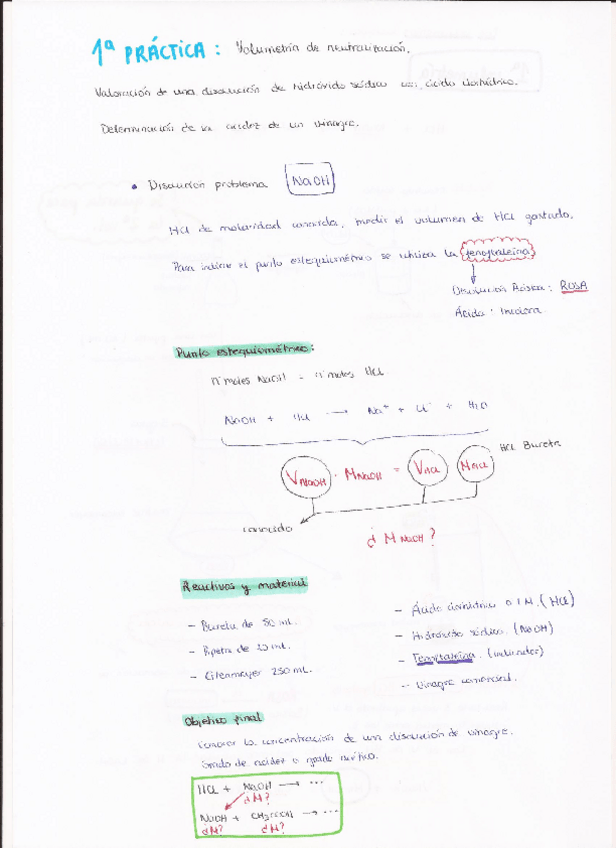 1ª PRÁCTICA : Volumetría de neutralización.
Valoración de una disolución de hidróxido sódico con ácido clorhídrico.
Determinación de la acidez de un vinagre.
• Disolución problema NaOH
HCl de molaridad conocida, medir el volumen de HCl gastado.
Para indicar el punto estequiométrico se utiliza la fenoftaleína
Disolución Básica : ROSA
Ácida : Incolora
Punto estequiométrico:
nº moles NaOH = nº moles HCl
NaOH + HCl → Na⁺ + Cl⁻ + H₂O
HCl Bureta
V NaOH · M NaOH = V HCl M HCl
conocido
¿ M NaOH ?
Reactivos y material
- Bureta de 50 mL.
- Pipeta de 25 mL.
- Erlenmeyer 250 mL.
- Ácido clorhídrico 0.1 M. (HCl)
- Hidróxido sódico. (NaOH)
- Fenoftaleína. (indicador)
- Vinagre comercial.
Objetivo final
Conocer la concentración de una disolución de vinagre.
Grado de acidez o grado acético.
HCl + NaOH → ...
¿M?
NaOH + CH₃COOH → ...
¿M? ¿M?